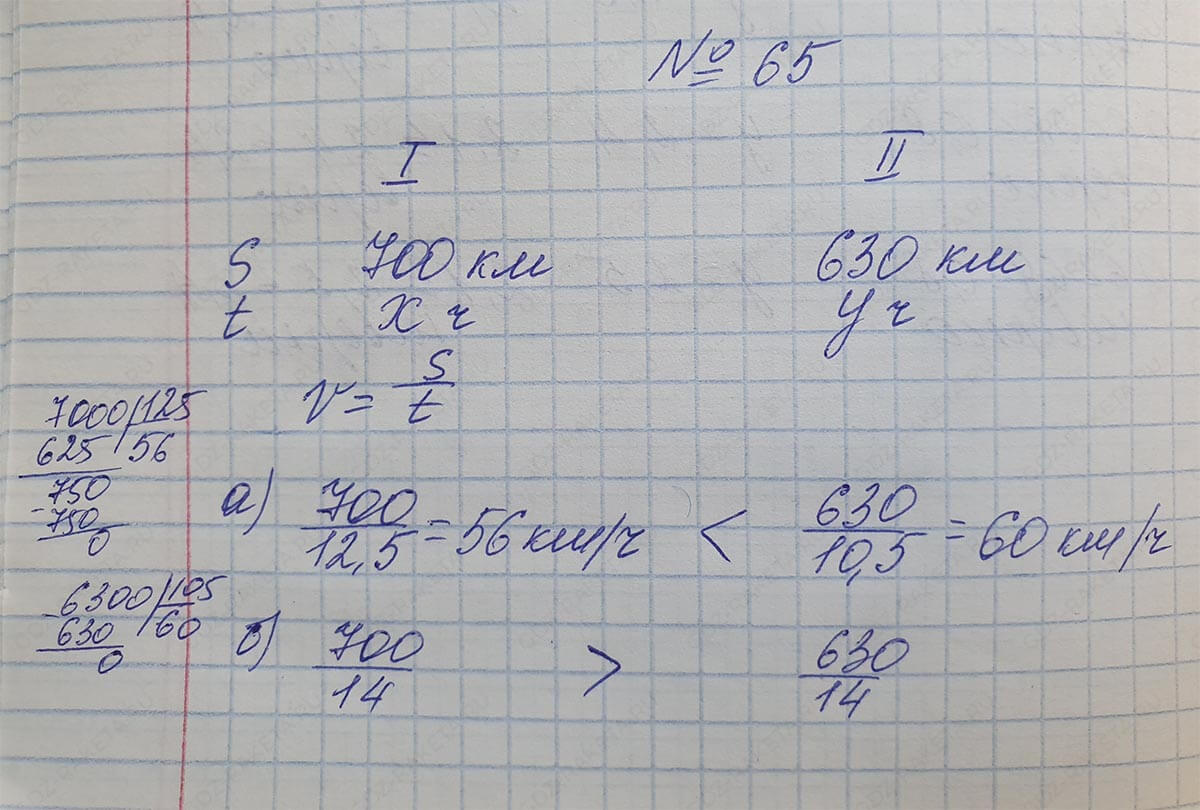 № 65
I II
S 700 км 630 км
t x ч y ч
v = S/t
7000 | 125
625 56
- 750
750
0
а) 700/12,5 = 56 км/ч < 630/10,5 = 60 км/ч
- 6300 | 105
630 60
0
б) 700/14 > 630/14